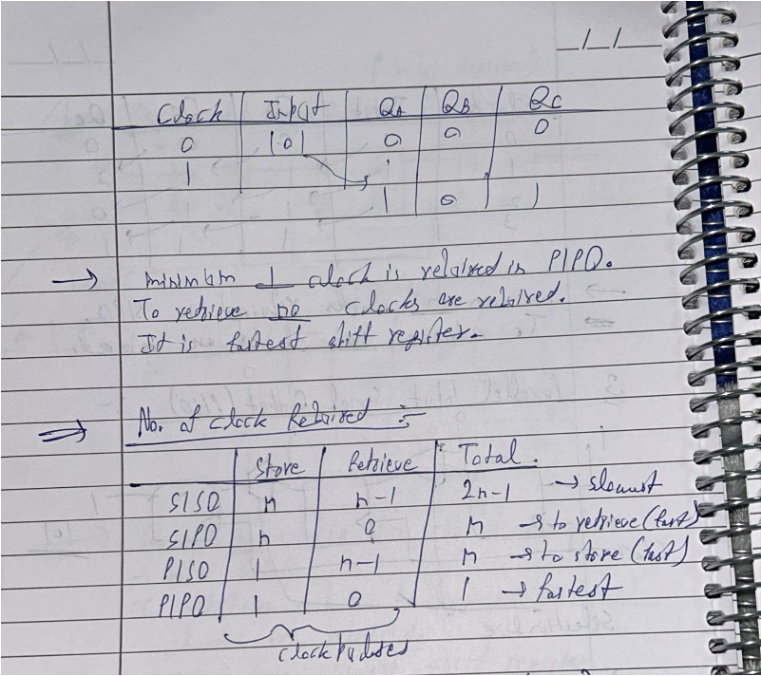 _/_/_
Clock Input QA QB QC
0 101 0 0 0
1
1 0 1
→ minimum 1 clock is required in PIPO.
To retrieve no clocks are required.
It is fastest shift register.
⇒ No. of clock Required :-
Store Retrieve Total.
SISO n n-1 2n-1 → slowest
SIPO n 0 n → to retrieve (fast)
PISO 1 n-1 n → to store (fast)
PIPO 1 0 1 → fastest
clock pulses